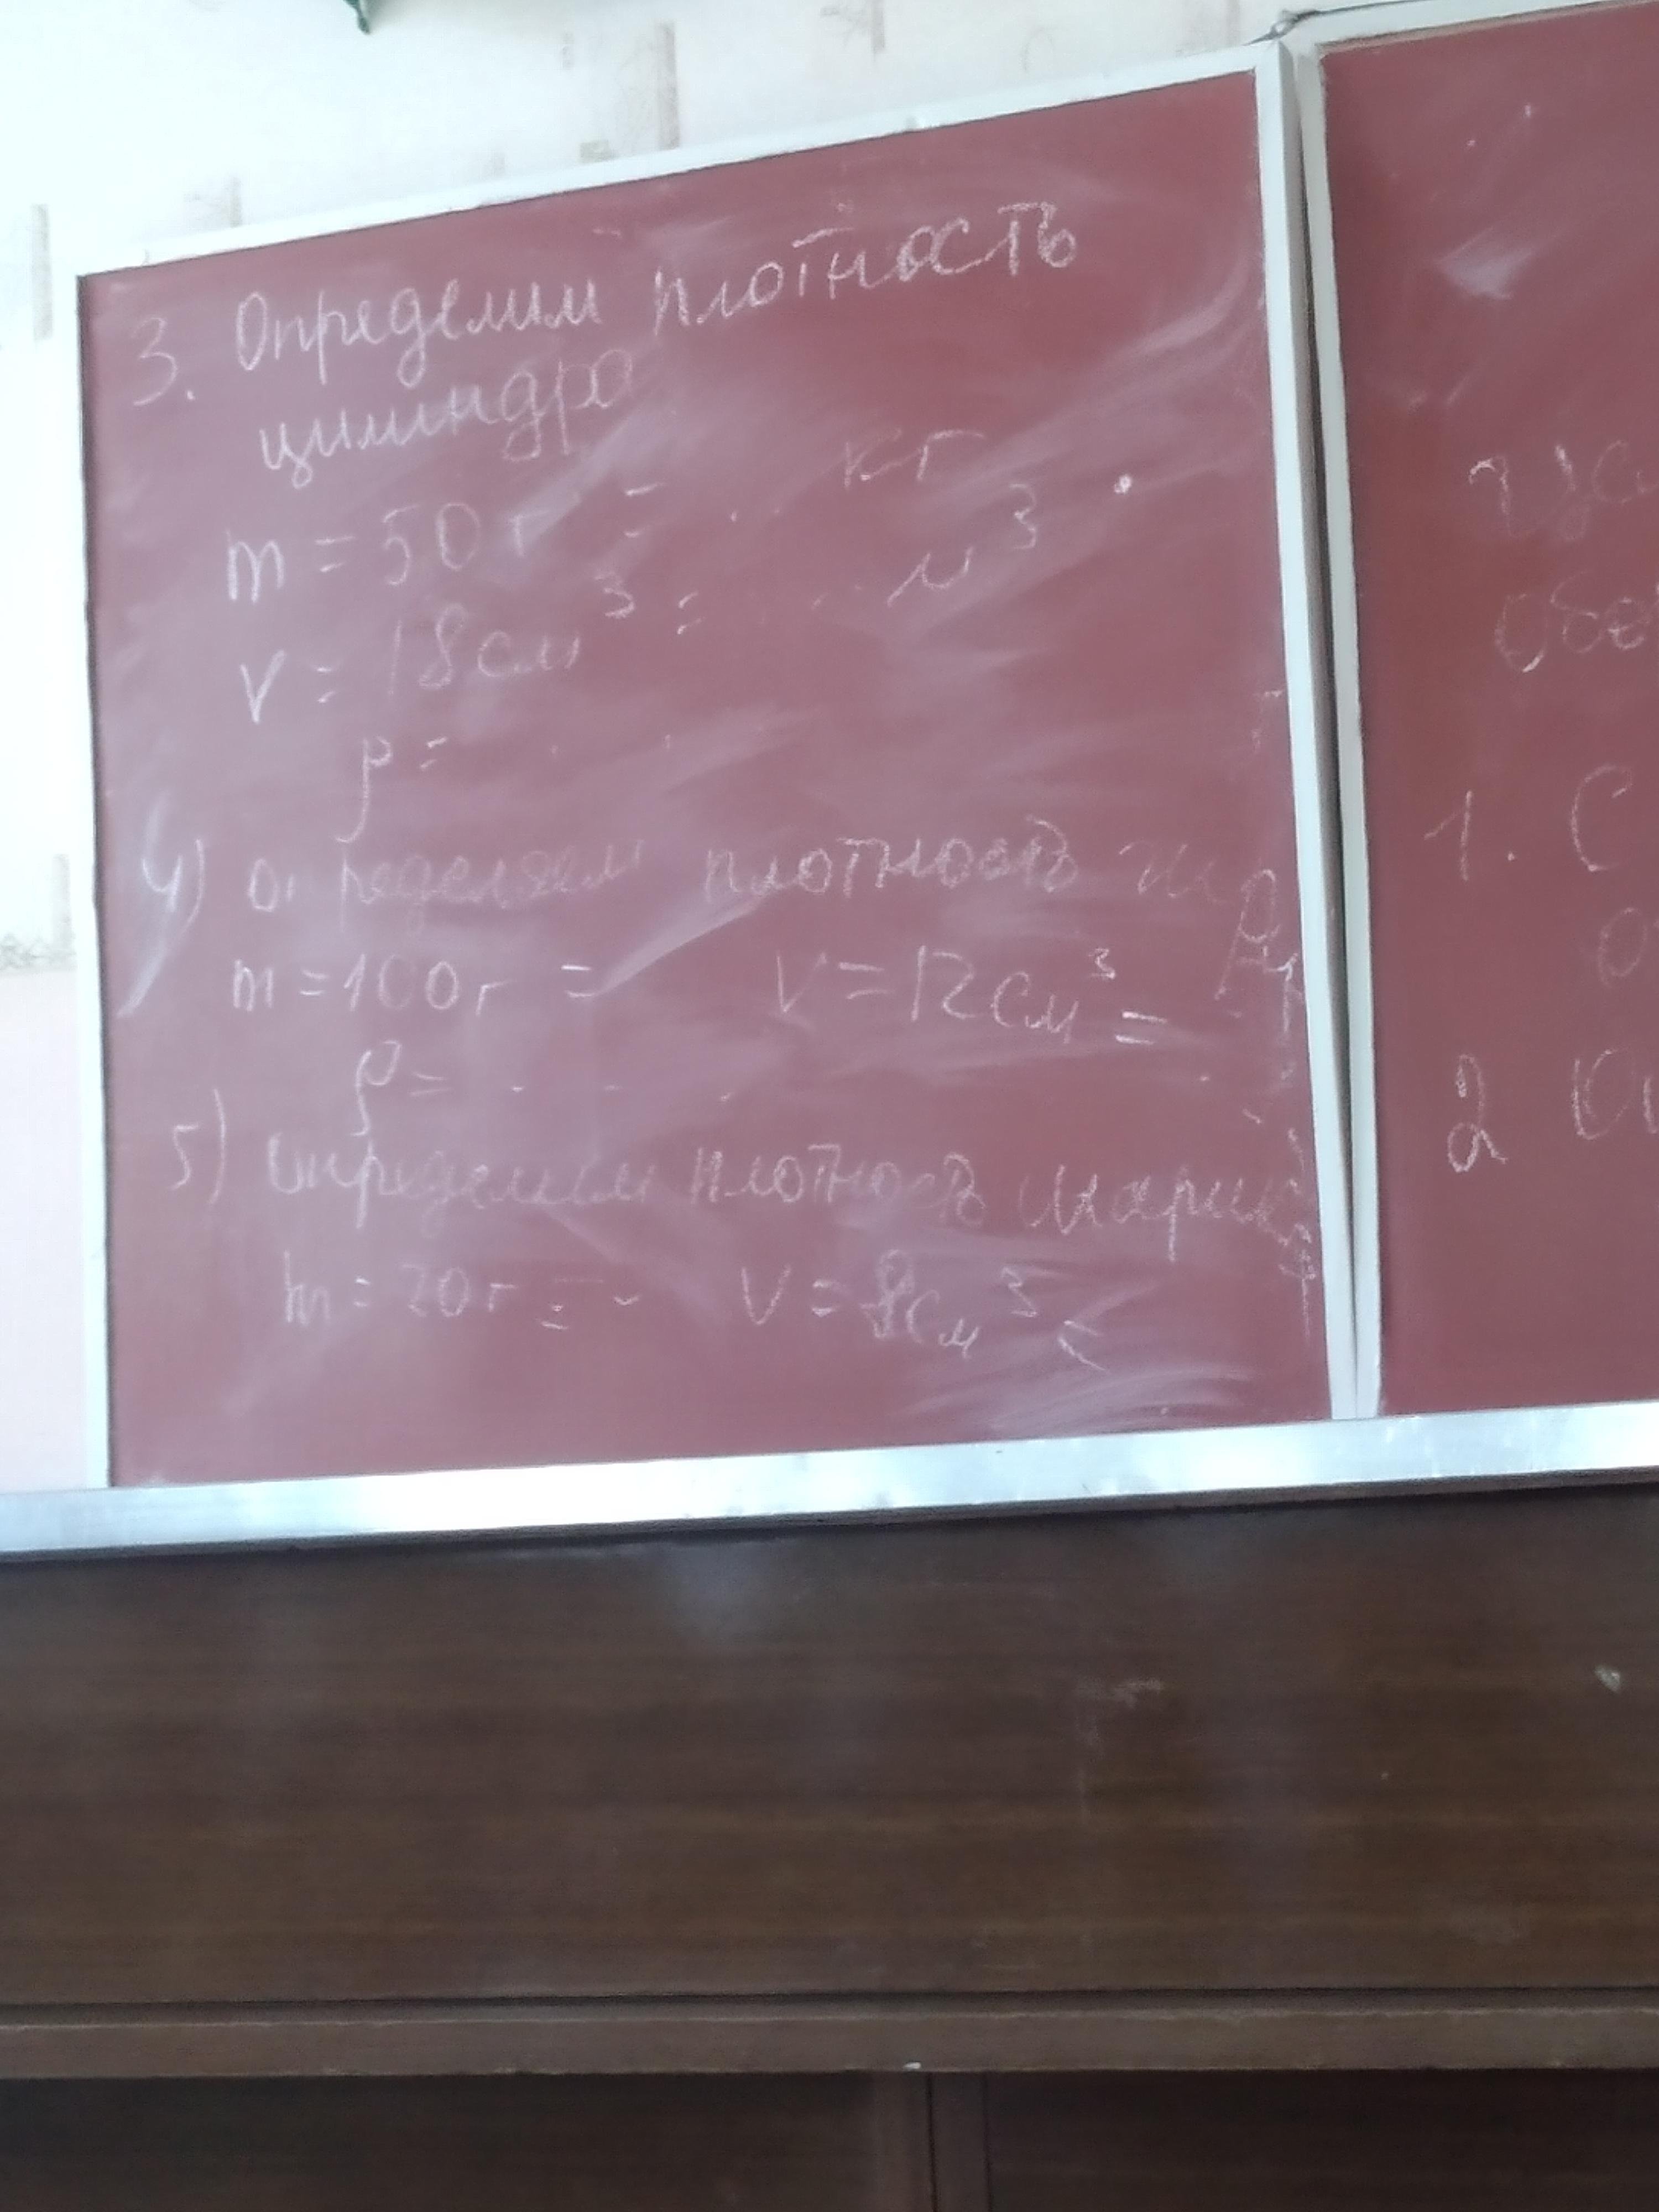 3. Определим плотность
цилиндра
m = 50 г = . . кг
V = 18 см³ = . . . м³
ρ = . . .
4) определяем плотность
m = 100 г = V = 12 см³ =
ρ = . . .
5) определим плотность шарика
m = 20 г = - V = 8 см³ =
1. С
2